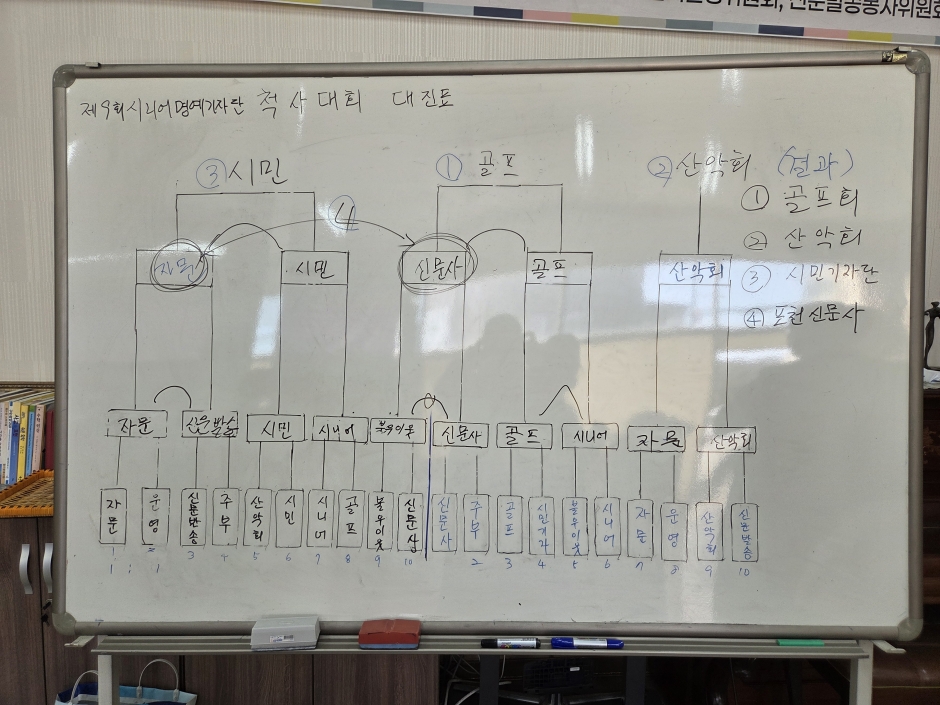 신문발송봉사위원회
제9회시니어명예기자단 척사대회 대진표
③시민 ① 골프 ②산악회 (결과)
① 골프회
④
② 산악회
자문 시민 신문사 골프 산악회
③ 시민기자단
④ 포천신문사
자문 신문발송 시민 시니어 불우이웃 신문사 골프 시니어 자문 산악회
자문 운영 신문발송 주부 산악회 시민 시니어 골프 불우이웃 신문사 신문사 주부 골프 시민기자 불우이웃 시니어 자문 운영 산악회 신문발송
1 2 3 4 5 6 7 8 9 10 2 3 4 5 6 7 8 9 10
1 : 1